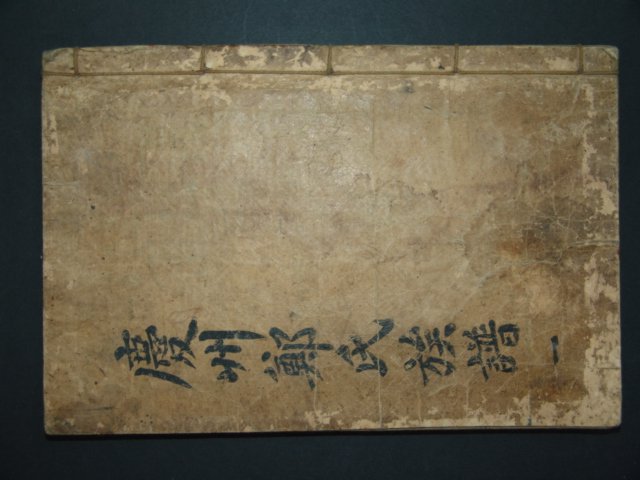 慶州鄭氏族譜 一